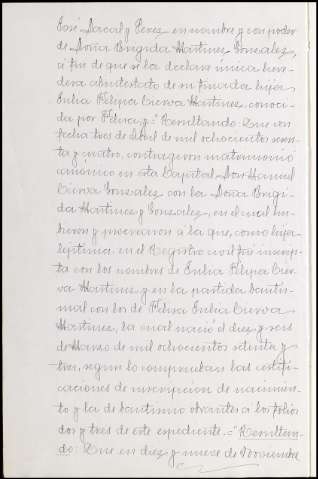 José Dacal y Perez en nombre y con poder
de Doña Brigida Martinez Gonzalez,
á fin de que se la declare única here-
dera abintestato de su finada hija
Eulia Felipa Cueva Martinez, conoci-
da por Felisa; y: Resultando: Que con
fecha tres de Abril de mil ochocientos sesen-
ta y cuatro, contrageron matrimonio
canónico en esta Capital, Don Manuel
Cueva Gonzalez con la Doña Brigi-
da Martinez y Gonzalez, en el cual hu-
bieron y procrearon á la que, como hija
legitima, en el Registro civil fué inscrip-
ta con los nombres de Eulia Felipa Cue-
va Martinez y en la partida bautis-
mal con los de Felisa Eulia Cueva
Martinez, la cual nació el diez y seis
de Marzo de mil ochocientos setenta y
tres, segun lo comprueban las certifi-
caciones de inscripcion de nacimien-
to y la de bautismo obrantes a los folios
dos y tres de este expediente.=Resultan-
do: Que en diez y nueve de Noviembre